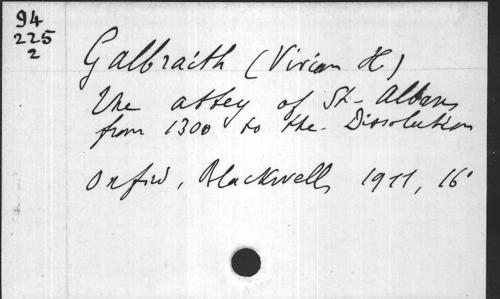 94
225
2
Galbraith (Vivian H)
The abbey of St. Albans
from 1300 to the Dissolution
Oxford, Blackwell, 1911, 16°